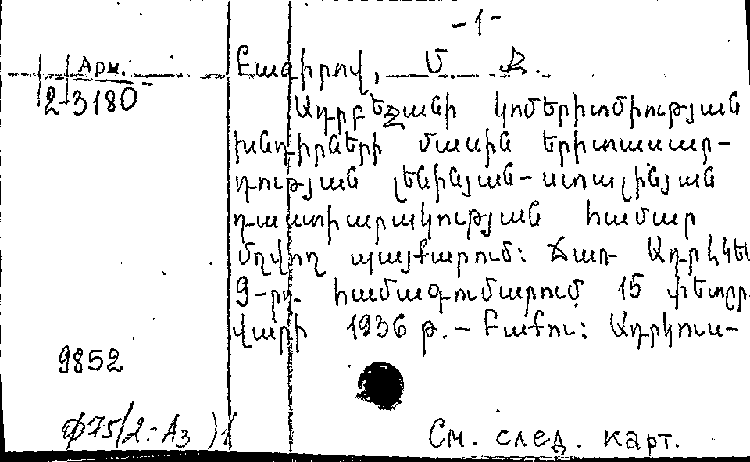 -1-
Арм.
2-3180
Բաղիրով, Մ. Ջ.
Ադրբեջանի կոմերիտմիության
խնդիրները մասին երիտասար-
դության լենինյան-ստալինյան
դաստիարակության համար
մղվող պայքարում: Ճառ Ադրկկե
9-րդ համագումարում 15 փետըր
վարի 1936 թ.-Բաքու: Ադրկուս-
9852
Ф75(2-Аз)1
См. след. карт.